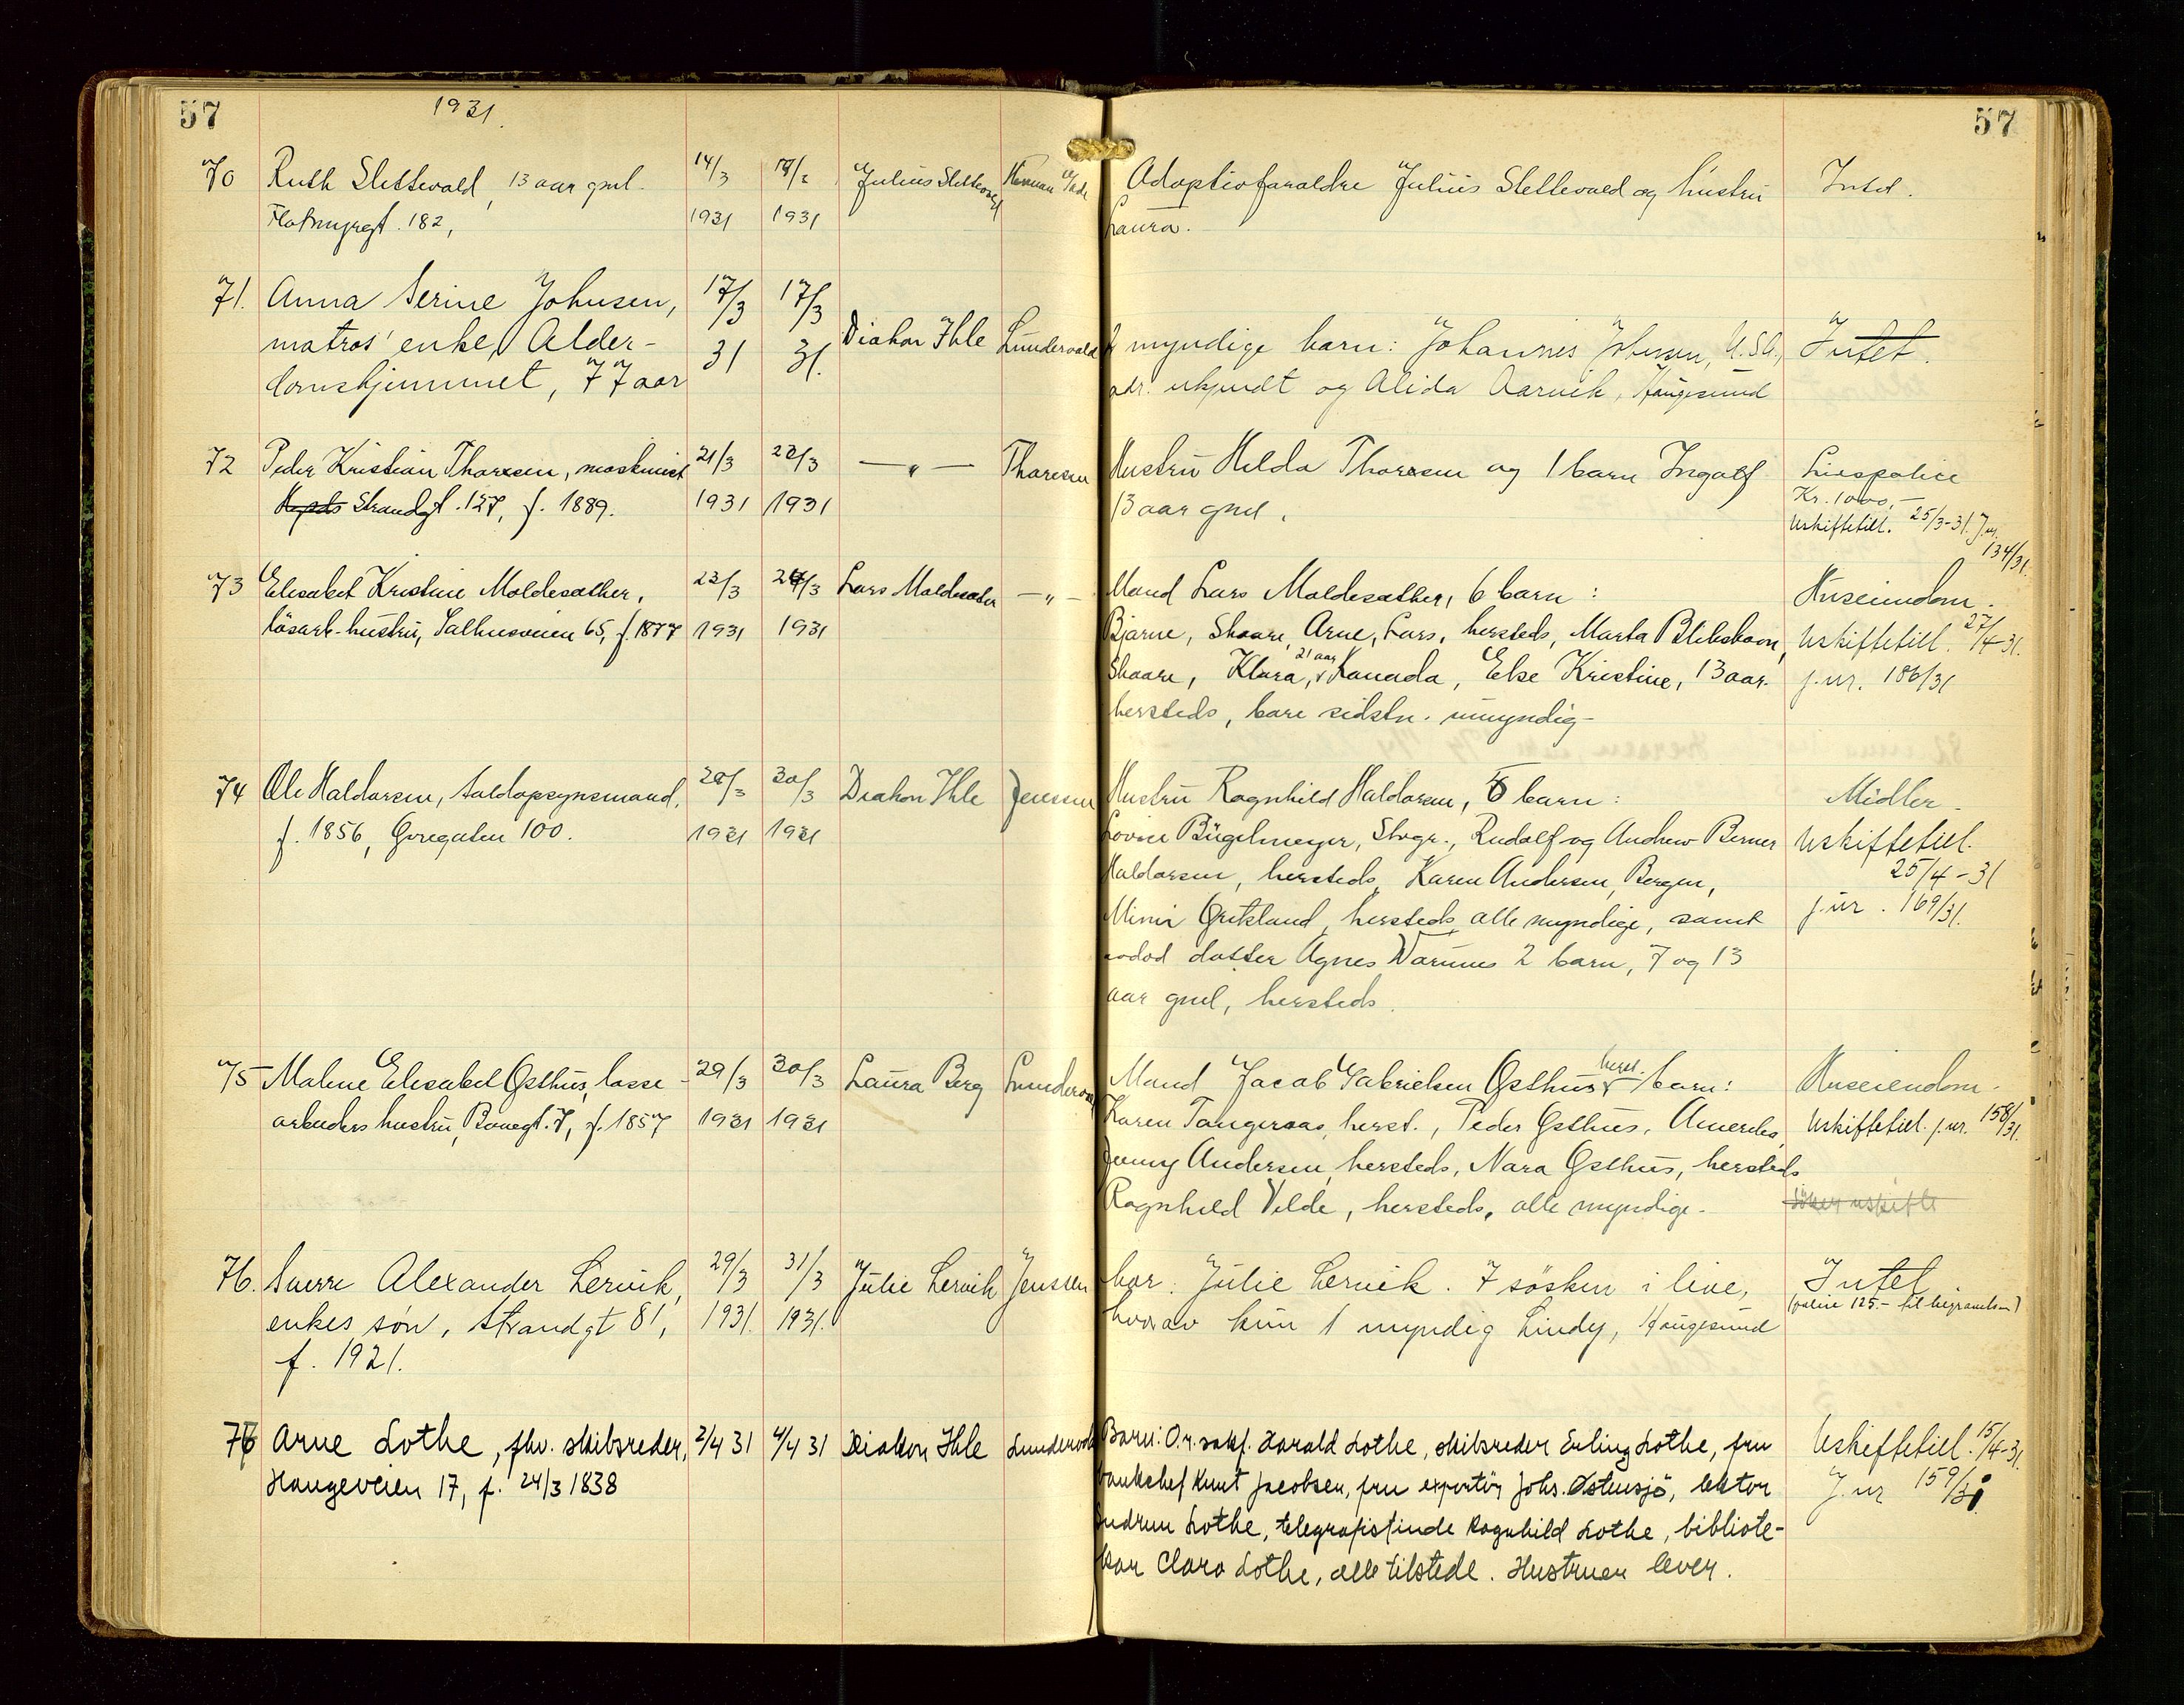 57
1931.
57
70 Ruth Slettevold, 13 aar gml. 14/3 19/2 Julius Slettevold Herman Adoptivforældre Julius Slettevold og hustru Intet.
Flotmyrgt. 182, 1931 1931 Laura.
71. Anna Serine Johnsen, 17/3 17/3
matros' enke, Alder- 31 31. Diakon Ihle Lundevold myndige barn: Johannes Johnsen, U.S.A., Intet.
domshjemmet, 77 aar adr. ukjendt og Alida Aarvik, Haugesund
72 Peder Kristian Thoresen, maskinist 21/3 23/3 —„— Thoresen Hustru Hilda Thoresen og 1 barn Ingolf Livspolice
Strandgt. 127, f. 1889. 1931 1931 13 aar gml. Kr. 1000,-
Uskiftetill. 25/3-31. J.nr.
134/31.
73 Elisabet Kristine Moldesæther, 23/3 24/3 Lars Moldesæter —„— Mand Lars Moldesæther, 6 barn: Huseiendom.
løsarb. hustru, Salhusveien 65, f. 1877 1931 1931 Bjarne, Skaare, Arne, Lars, hersteds, Marta Blikshavn, Uskiftetill. 27/4-31.
Skaare, Klara, 21 aar Kanada, Else Kristine, 13 aar. j.nr. 186/31
hersteds, bare sidstn. umyndig-
74 Ole Haldorsen, toldopsynsmand, 28/3 30/3 Diakon Ihle Jenssen Hustru Ragnhild Haldorsen, 6 barn: Midler-
f. 1856, Øvregaten 100. 1931 1931 Lovise Bügelmeyer, Stvgr., Rudolf og Andrew Berner Uskiftetill.
Haldorsen, hersteds, Karen Andersen, Bergen, 25/4-31
Mimi Grikland, hersteds, alle myndige, samt j.nr. 169/31.
avdød datter Agnes Varnes 2 barn, 7 og 13
aar gml, hersteds.
75 Malene Elisabet Østhus, losse- 29/3 30/3 Laura Berg Lundevold Mand Jacob Gabrielsen Østhus, herst. barn: Huseiendom-
arbeiders hustru, Banegt. 7, f. 1857 1931 1931 Karen Tangeraas, herst., Peder Østhus, Amerika, Uskiftetill. j.nr. 158/31.
Jenny Andersen, hersteds, Nara Østhus, hersteds
Ragnhild Velde, hersteds, alle myndige. søker uskifte
76. Sverre Alexander Lervik, 29/3 31/3 Julie Lervik Jenssen Mor: Julie Lervik. 7 søsken i live, Intet
enkes søn, Strandgt 81, 1931. 1931. hvorav kun 1 myndig Lindy, Haugesund (police 125.- til begravelsen)
f. 1921.
77 Arne Lothe, fhv. skibsreder, 2/4 31 4/4 31 Diakon Ihle Lundevold Barn: O.r.sakf. Harald Lothe, skibsreder Erling Lothe, fru Uskiftetill. 15/4-31.
Haugeveien 17, f. 24/3 1838 bankchef Knut Jacobsen, fru exportør Johs. Østensjø, lektor J.nr 159/31
Gudrun Lothe, telegrafistinde Ragnhild Lothe, bibliote-
kar Clara Lothe, alle tilstede. Hustruen lever.